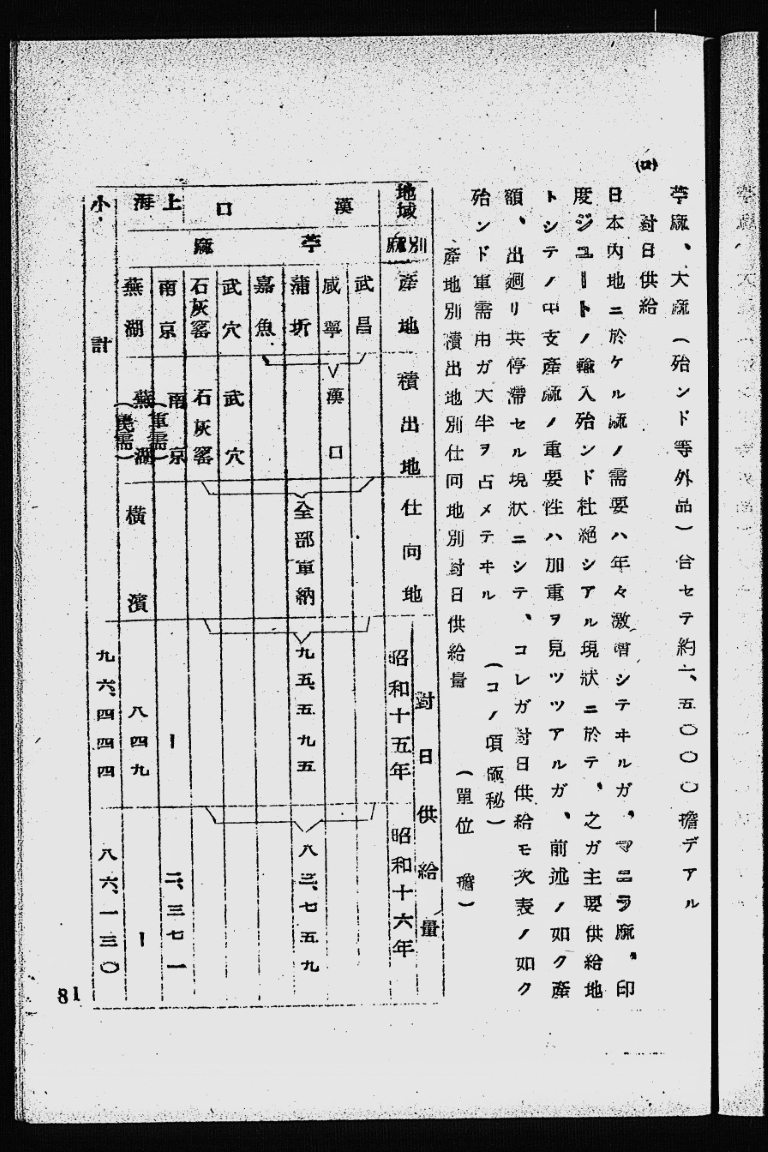 苧麻、大麻(殆ンド等外品)合セテ約一、五〇〇〇擔デアル
(ロ) 對日供給
日本內地ニ於ケル麻ノ需要ハ年々激增シテヰルガ、マニラ麻、印
度ジユートノ輸入殆ンド杜絕シアル現狀ニ於テ、之ガ主要供給地
トシテノ中支產麻ノ重要性ハ加重ヲ見ツツアルガ、前述ノ如ク產
額、出廻リ共停滯セル現狀ニシテ、コレガ對日供給モ次表ノ如ク
殆ンド軍需用ガ大半ヲ占メテヰル (コノ項極秘)
產地別積出地別仕向地別對日供給量 (單位 擔)
地域 漢口 上海 小計
麻別 苧麻
產地 武昌 咸寧 蒲圻 嘉魚 武穴 石灰窰 南京 蕪湖
積出地 漢口 武穴 石灰窰 南京(軍需) 蕪湖(民需)
仕向地 全部軍納 橫濱
對日供給量
昭和十五年 九五、五九五 ー 八四九 九六、四四四
昭和十六年 八三、七五九 二、三七一 ー 八六、一三〇
81